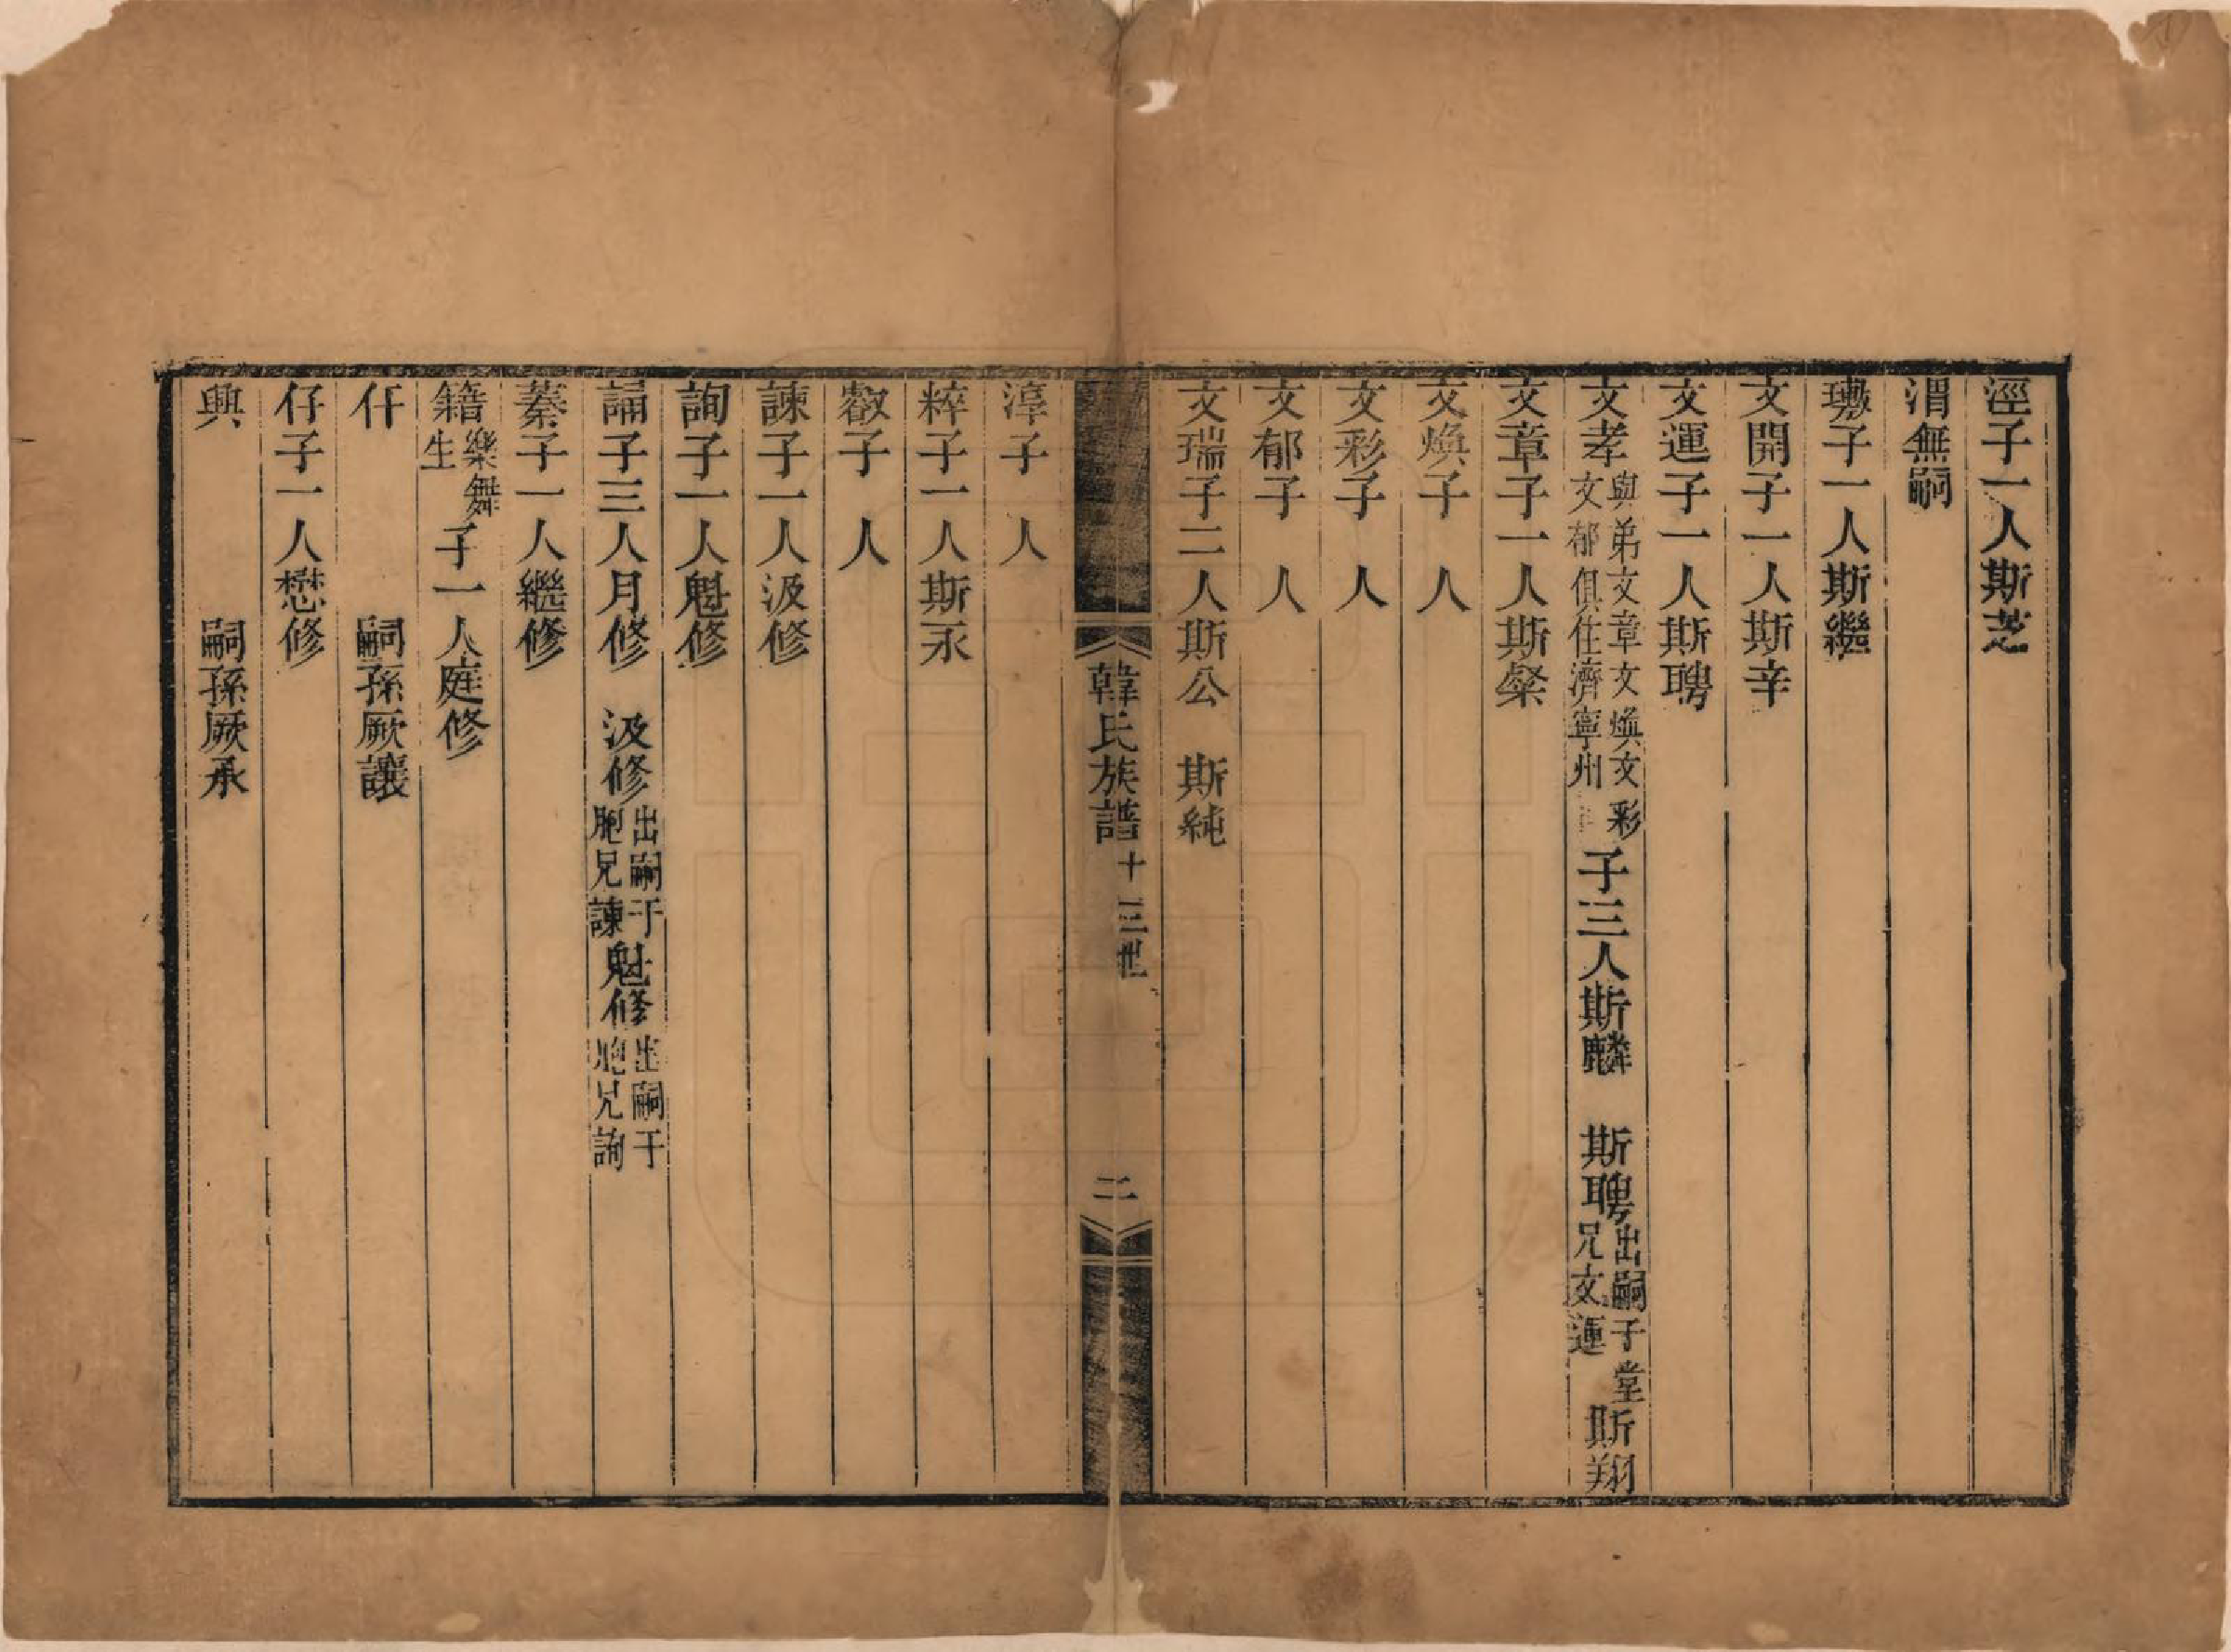 涇子一人斯芝
渭無嗣
璷子一人斯繼
文開子一人斯辛
文運子一人斯聘
文孝與弟文章文煥文彩文郁俱住濟寧州子三人斯麟　斯聘出嗣子堂兄文運　斯翔
文章子一人斯粲
文煥子　人
文彩子　人
文郁子　人
文瑞子二人斯公　斯純
韓氏族譜十三世　二
淳子　人
粹子一人斯承
敎子　人
諫子一人汲修
詢子一人魁修
誦子三人月修　汲修出嗣于胞兄諫魁修出嗣于胞兄詢
蓁子一人繼修
籍樂舞生子一人庭修
仟　嗣孫厥讓
仔子一人懋修
興　嗣孫厥承